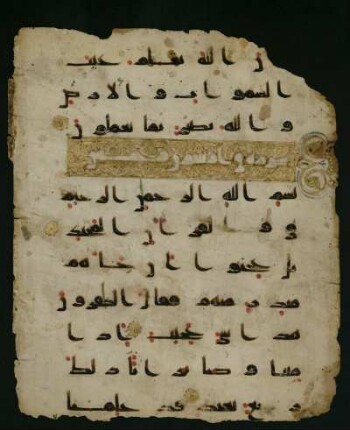 ن الله يعلم غيب
السموت و الارض
و الله بصير بما تعملون
سورة ق
بسم الله الرحمن الرحيم
ق و القران المجيد
بل عجبوا ان جاهم
منذر منهم فقال الكفرون
هذا شي عجيب اذا
متنا و كنا ترابا ذلك
رجع بعيد قد علمنا